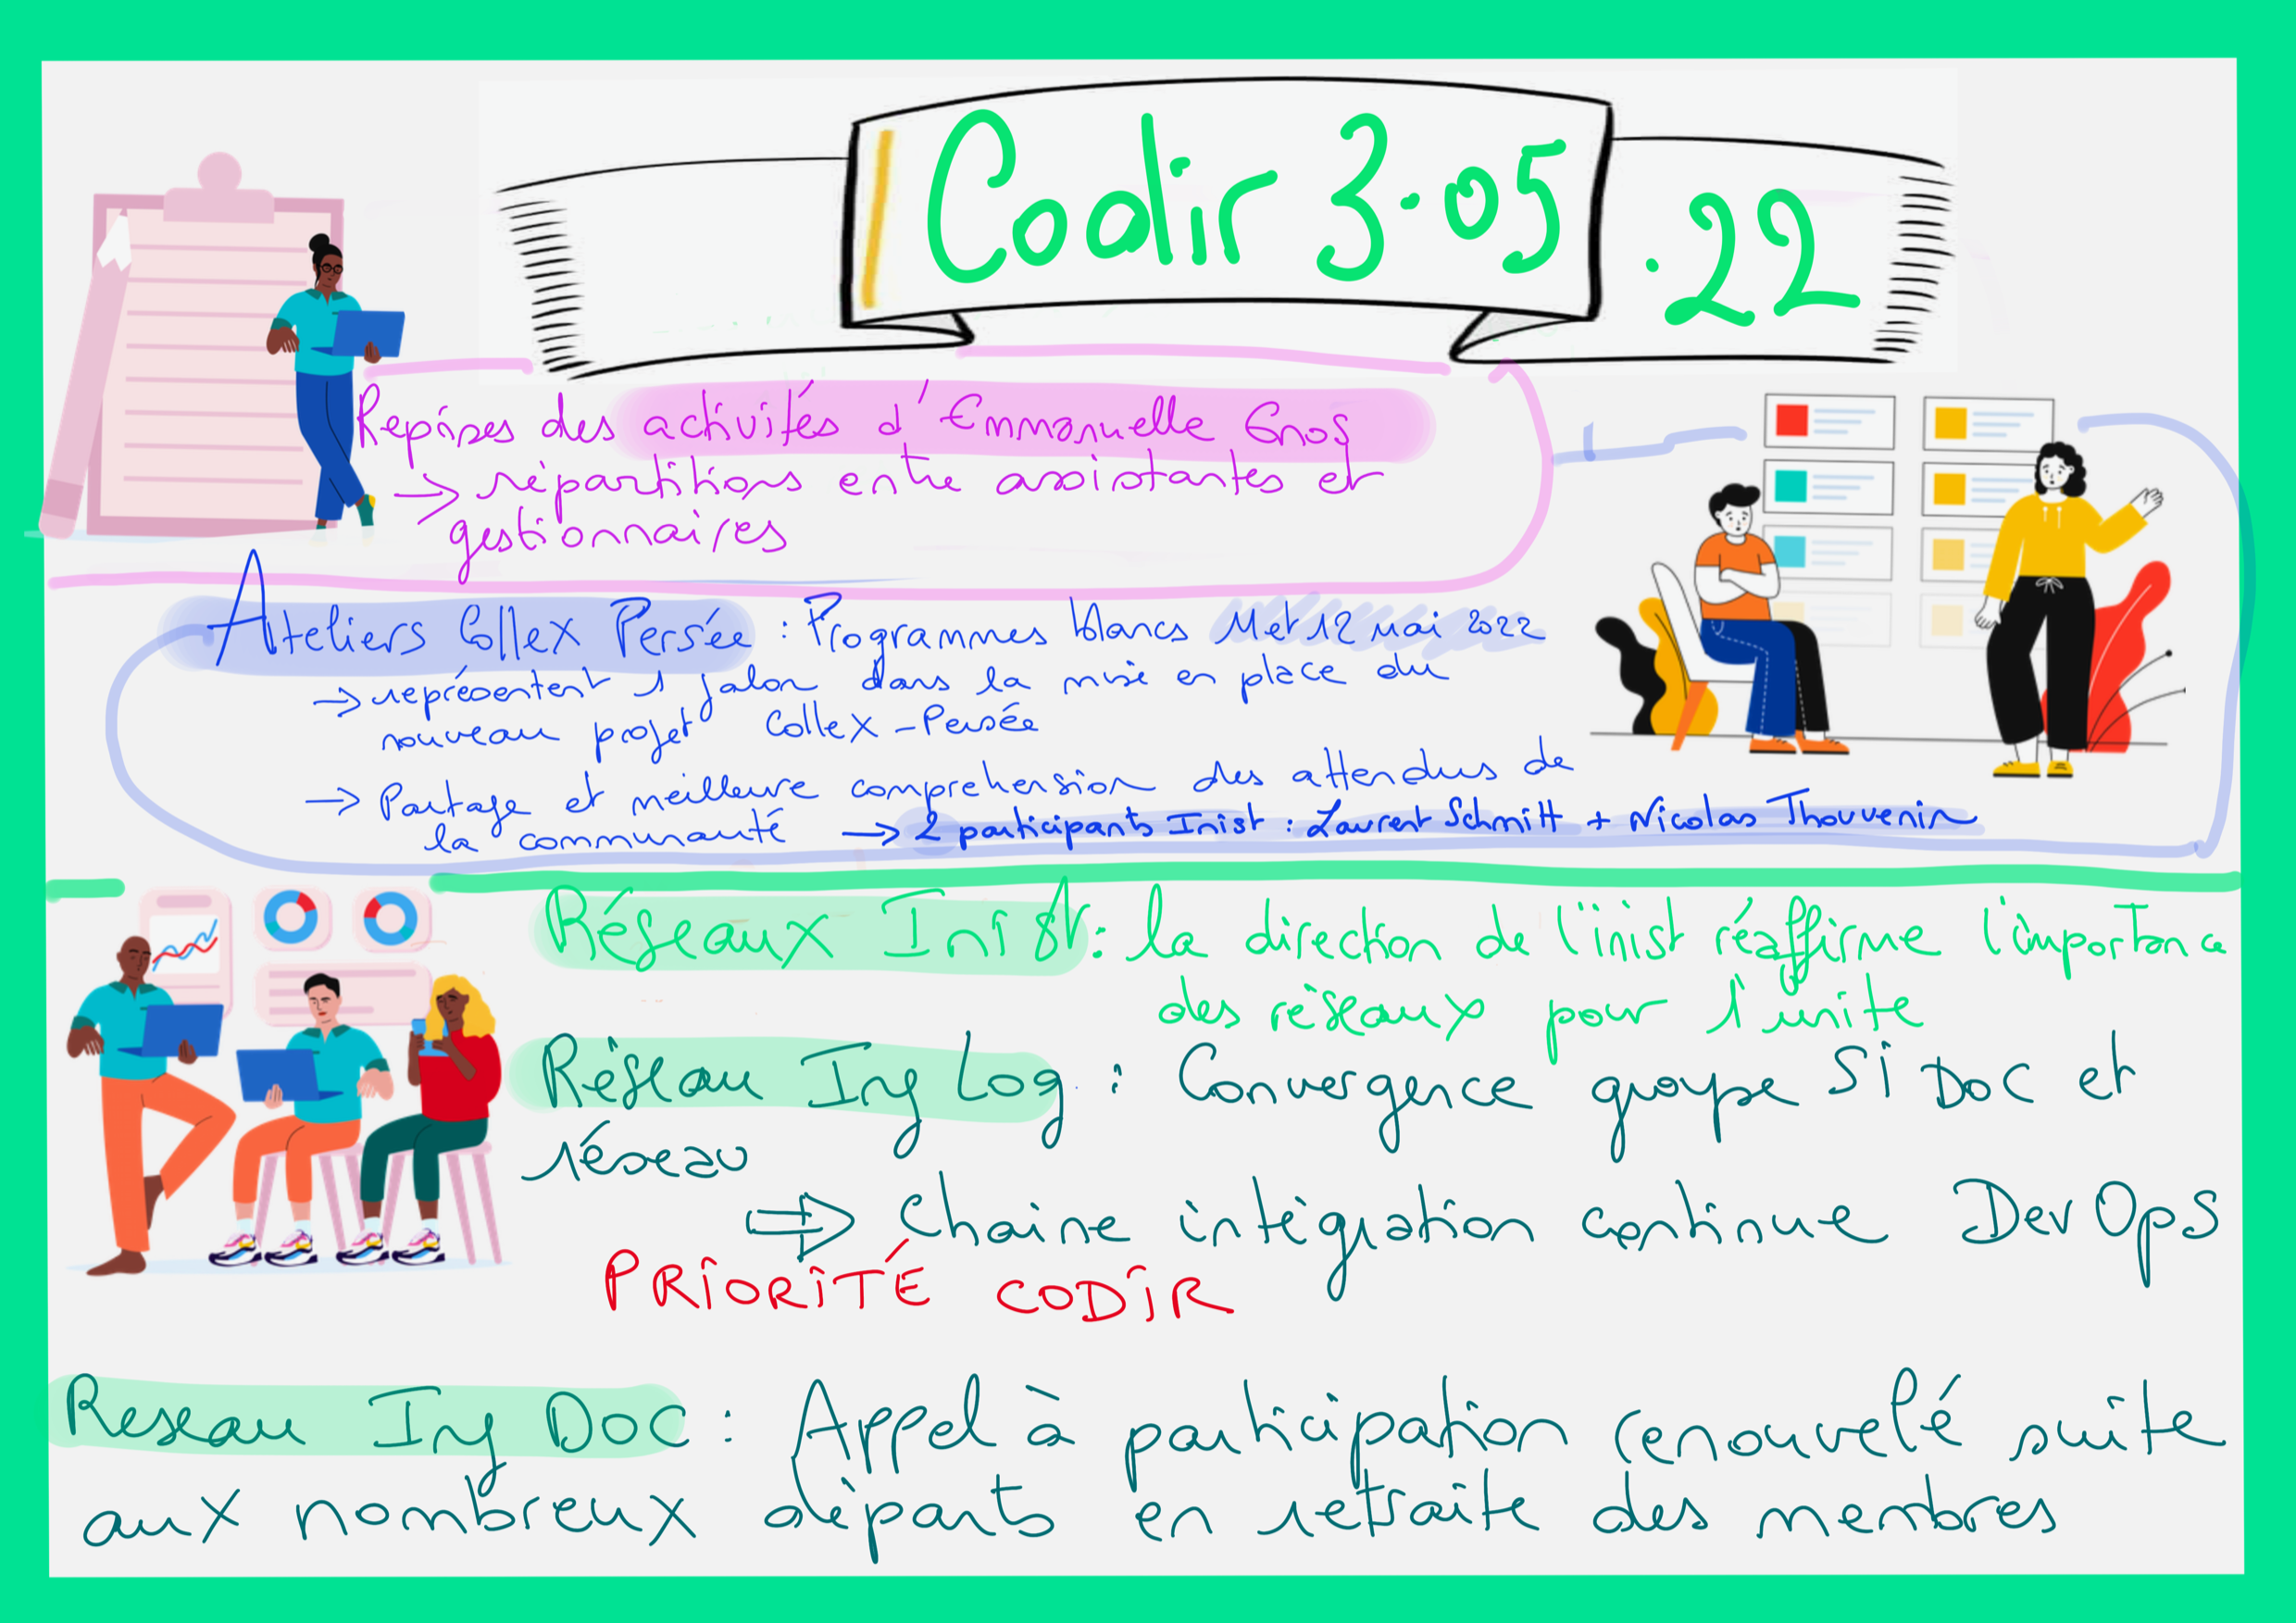 Codir 3.05.22
Reprises des activités d'Emmanuelle Enos
→ répartitions entre assistantes et
gestionnaires
Ateliers CollEx Persée : Programmes blancs 11 et 12 mai 2022
→ représentent 1 jalon dans la mise en place du
nouveau projet CollEx-Persée
→ Partage et meilleure comprehension des attendus de
la communauté → 2 participants Inist : Laurent Schmitt + Nicolas Thouvenin
Réseaux Inist : la direction de l'inist réaffirme l'importance
des réseaux pour l'unité
Réseau Ing Log : Convergence groupe Si Doc et
réseau
⇨ Chaine intégration continue DevOps
PRIORITÉ CODIR
Reseau Ing Doc : Appel à participation renouvelé suite
aux nombreux départs en retraite des membres